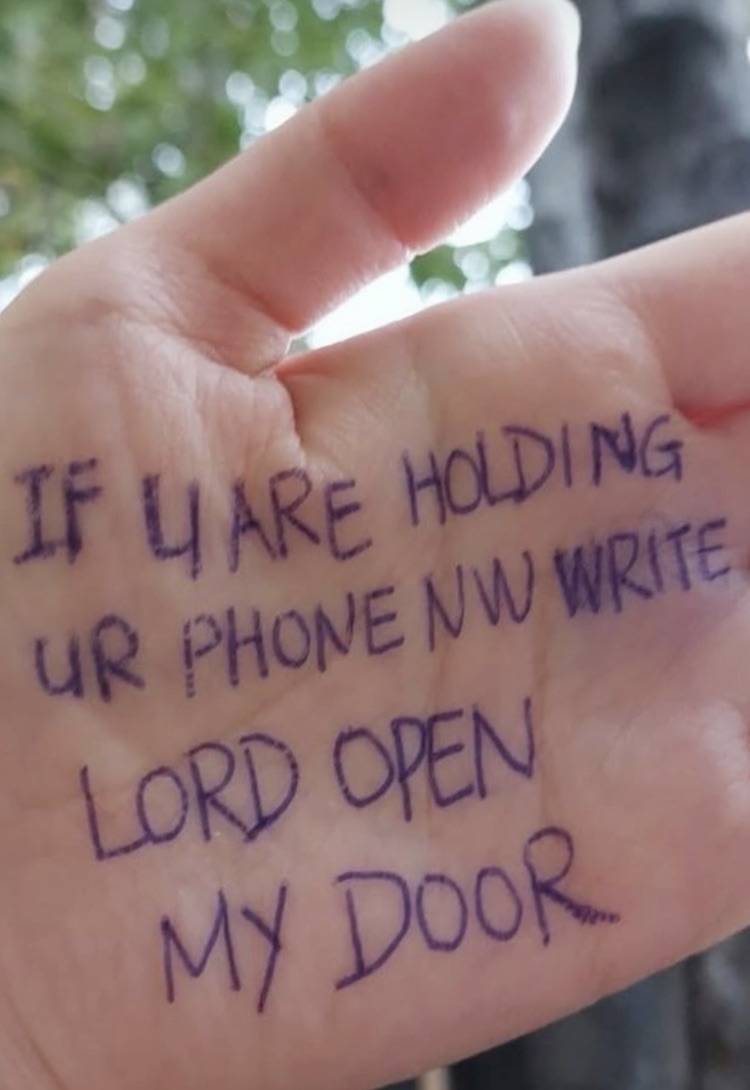 IF U ARE HOLDING
UR PHONE NW WRITE
LORD OPEN
MY DOOR